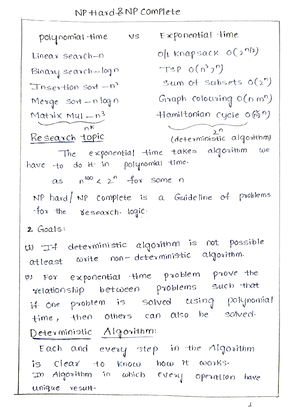 NP Hard & NP Complete
polynomial-time vs Exponential time
Linear search-n 0/1 Knapsack O(2^n/2)
Binary search-logn TSP O(n²,2ⁿ)
Insertion sort -n² Sum of subsets O(2ⁿ)
Merge sort -n logn Graph colouring O(n mⁿ)
Matrix Mul -n³ Hamiltonian Cycle
n^k 2ⁿ
Research topic (deterministic algorithm)
The exponential-time takes algorithm we
have to do it in polynomial time.
as n¹⁰⁰ < 2ⁿ for some n
NP hard/NP complete is a Guideline of problems
for the research logic.
2 Goals:
(1) If deterministic algorithm is not possible
atleast write non-deterministic algorithm.
For exponential-time problem prove the
relationship between problems such that
if one problem is solved using polynomial
time, then others can also be solved.
Deterministic Algorithm:
Each and every step in the Algorithm
is clear to know how it works.
In Algorithm in which every operation have
unique result.